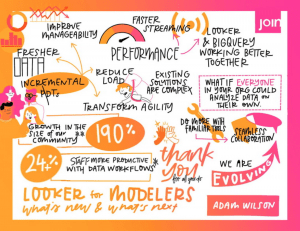 IMPROVE
MANAGEABILITY
FASTER
STREAMING
join
FRESHER
DATA
PERFORMANCE
LOOKER
& BIGQUERY
WORKING BETTER
TOGETHER
INCREMENTAL
PDTs
REDUCE
LOAD
EXISTING
SOLUTIONS
ARE COMPLEX
TRANSFORM AGILITY
WHAT IF EVERYONE
IN YOUR ORG COULD
ANALYZE DATA ON
THEIR OWN.
GROWTH IN THE
SIZE of our
COMMUNITY
190%
DO MORE WITH
FAMILIAR TOOLS
SEAMLESS
COLLABORATION
24%
STAFF MORE PRODUCTIVE
WITH DATA WORKFLOWS
thank
you
WE ARE
EVOLVING
LOOKER for MODELERS
what's new & what's next
ADAM WILSON